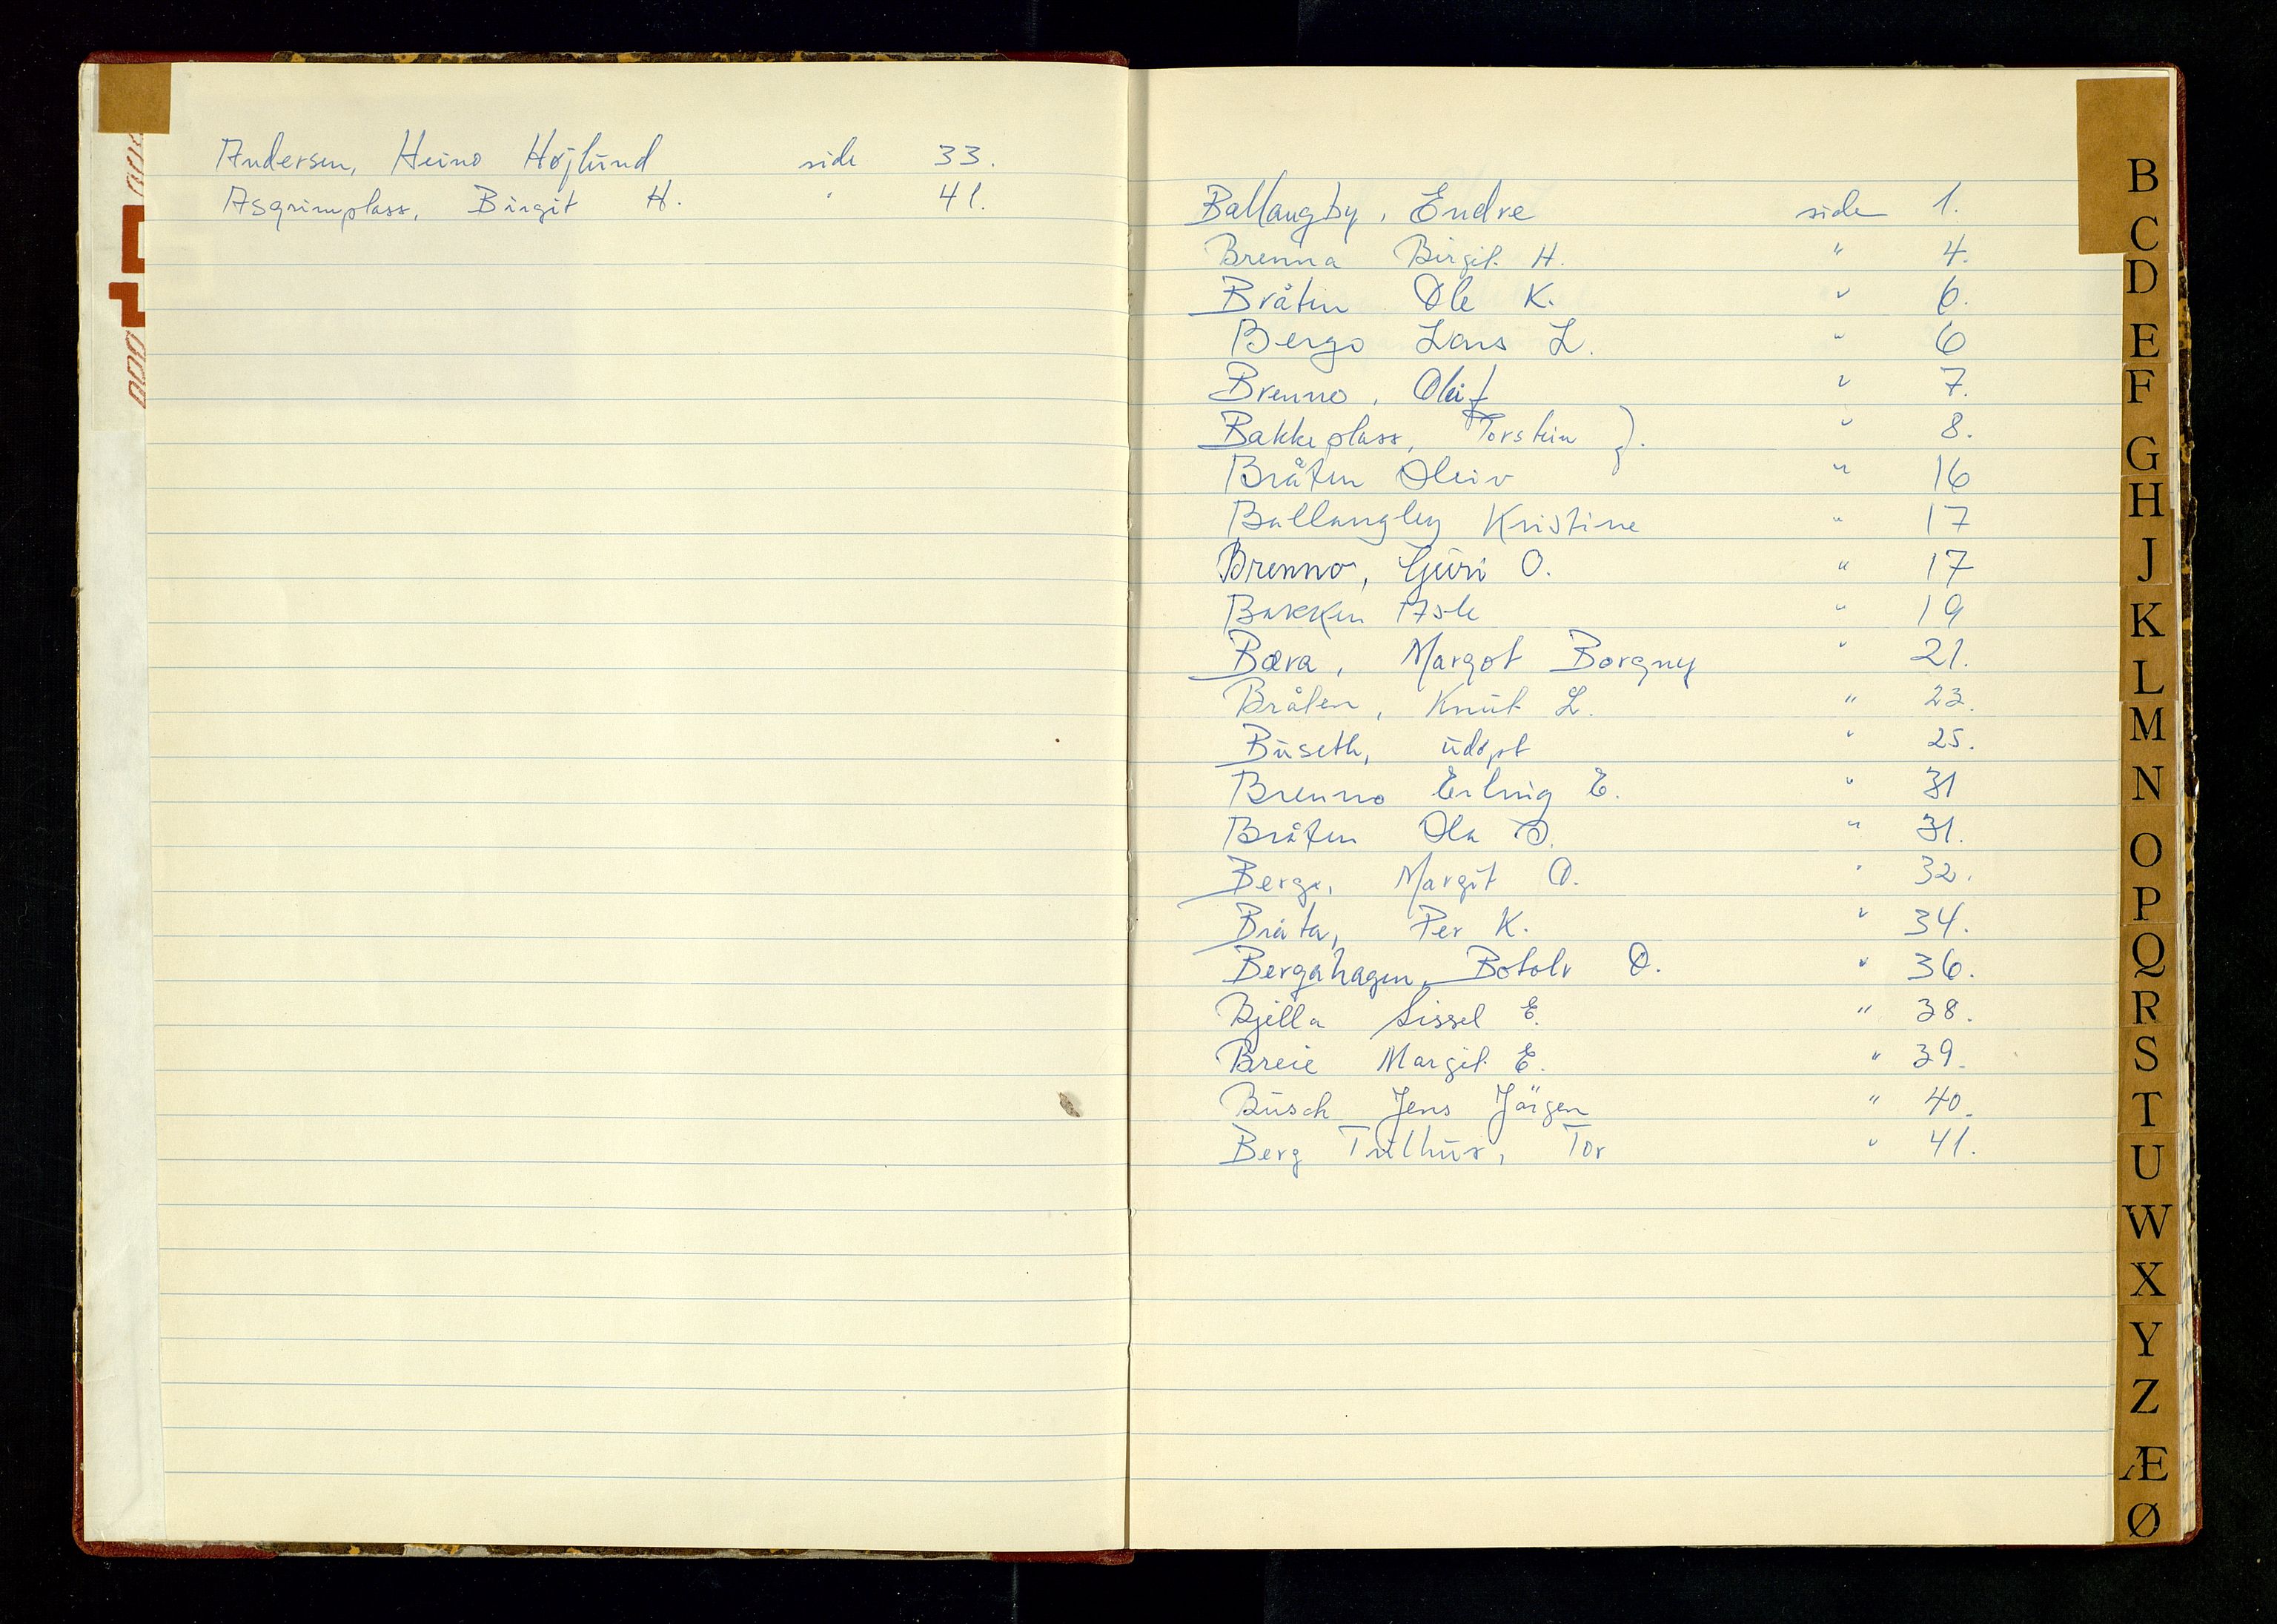 Andersen, Heino Højlund side 33.
Asgrimplass, Birgit H. " 41.
Ballangby, Endre side 1.
Brenna Birgit H. " 4.
Bråten Ole K. " 6.
Bergo Lars L. " 6
Brenno, Oleif " 7.
Bakkeplass, Torstein J. " 8.
Bråten Oleiv " 16
Ballangby Kristine " 17
Brenno, Guri O. " 17
Bakken Asle " 19
Bæra, Margot Borgny " 21.
Bråten, Knut L. " 23.
Buseth, udøpt " 25.
Brenno Erling E. " 31
Bråten Ola O. " 31.
Bergo, Margit O. " 32.
Bråta, Per K. " 34.
Bergahagen, Botolv O. " 36.
Bjella Sissel E. " 38.
Breie Margit E. " 39.
Busch Jens Jörgen " 40.
Berg Tulhus, Tor " 41.
B
C
D
E
F
G
H
J
K
L
M
N
O
P
Q
R
S
T
U
W
X
Y
Z
Æ
Ø